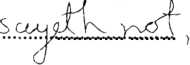 sayeth not,